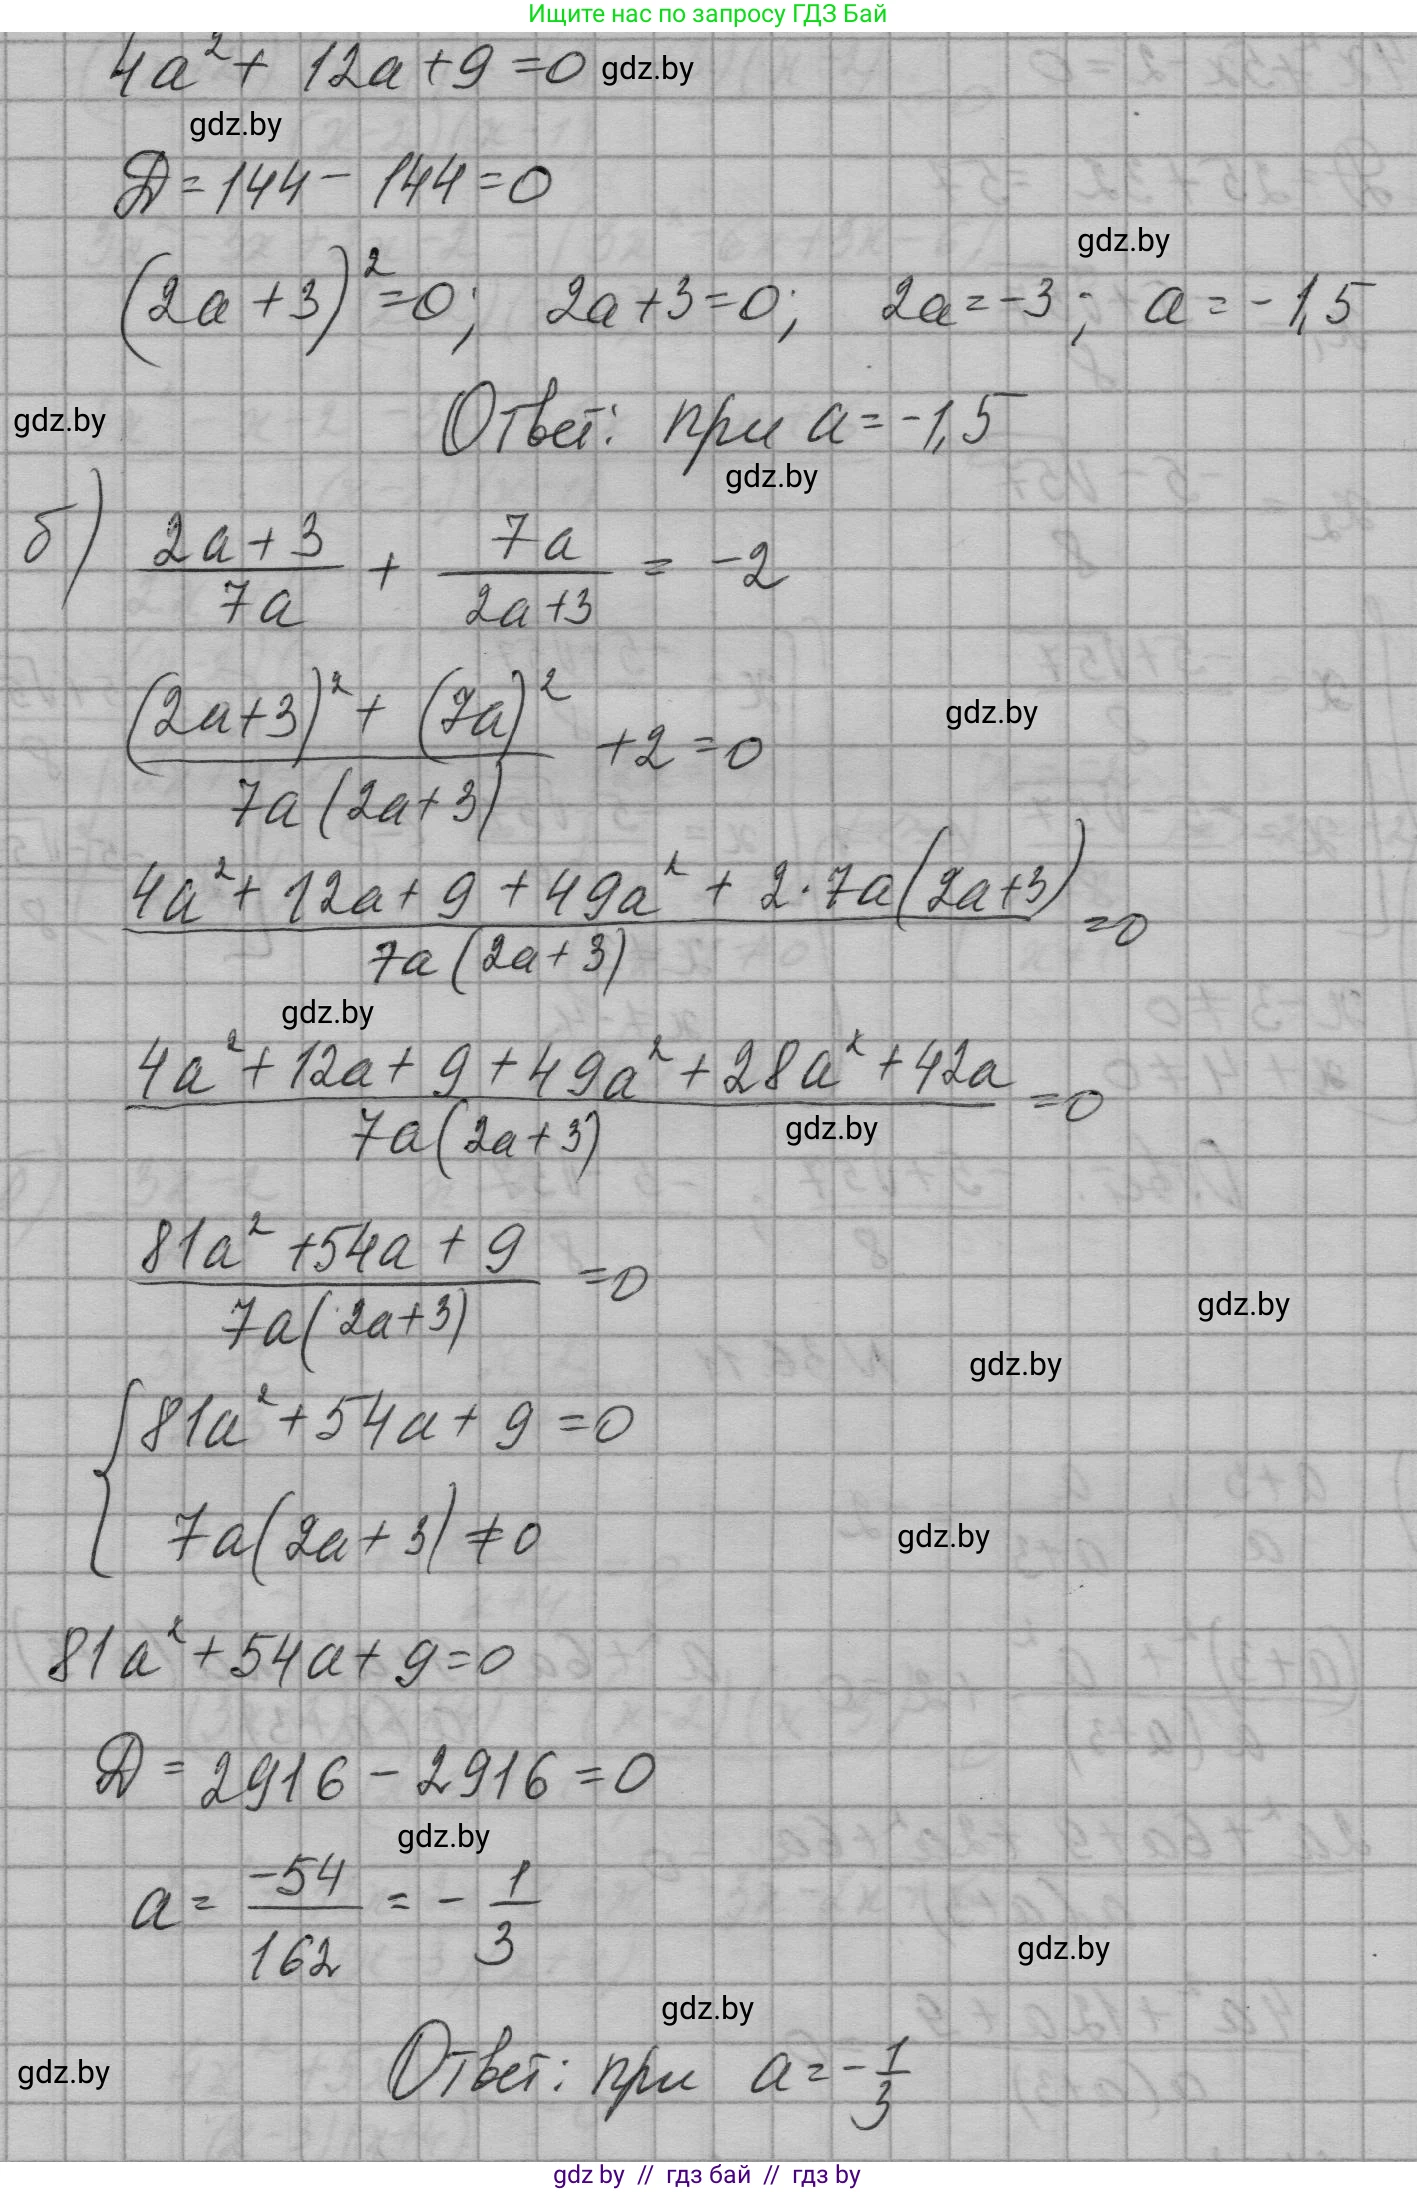 Ищите нас по запросу ГДЗ Бай
4a² + 12a + 9 = 0 gdz.by
gdz.by
D = 144 - 144 = 0
gdz.by
(2a + 3)² = 0; 2a + 3 = 0; 2a = -3; a = -1,5
gdz.by
Ответ: при a = -1,5
gdz.by
б) (2a + 3)/(7a) + (7a)/(2a + 3) = -2
((2a + 3)² + (7a)²)/(7a(2a + 3)) + 2 = 0
gdz.by
(4a² + 12a + 9 + 49a² + 2 · 7a(2a + 3))/(7a(2a + 3)) = 0
gdz.by
(4a² + 12a + 9 + 49a² + 28a² + 42a)/(7a(2a + 3)) = 0
gdz.by
(81a² + 54a + 9)/(7a(2a + 3)) = 0
gdz.by
gdz.by
{ 81a² + 54a + 9 = 0
7a(2a + 3) ≠ 0
gdz.by
81a² + 54a + 9 = 0
D = 2916 - 2916 = 0
gdz.by
a = -54/162 = -1/3
gdz.by
gdz.by
Ответ: при a = -1/3
gdz.by
gdz by // гдз бай // гдз by